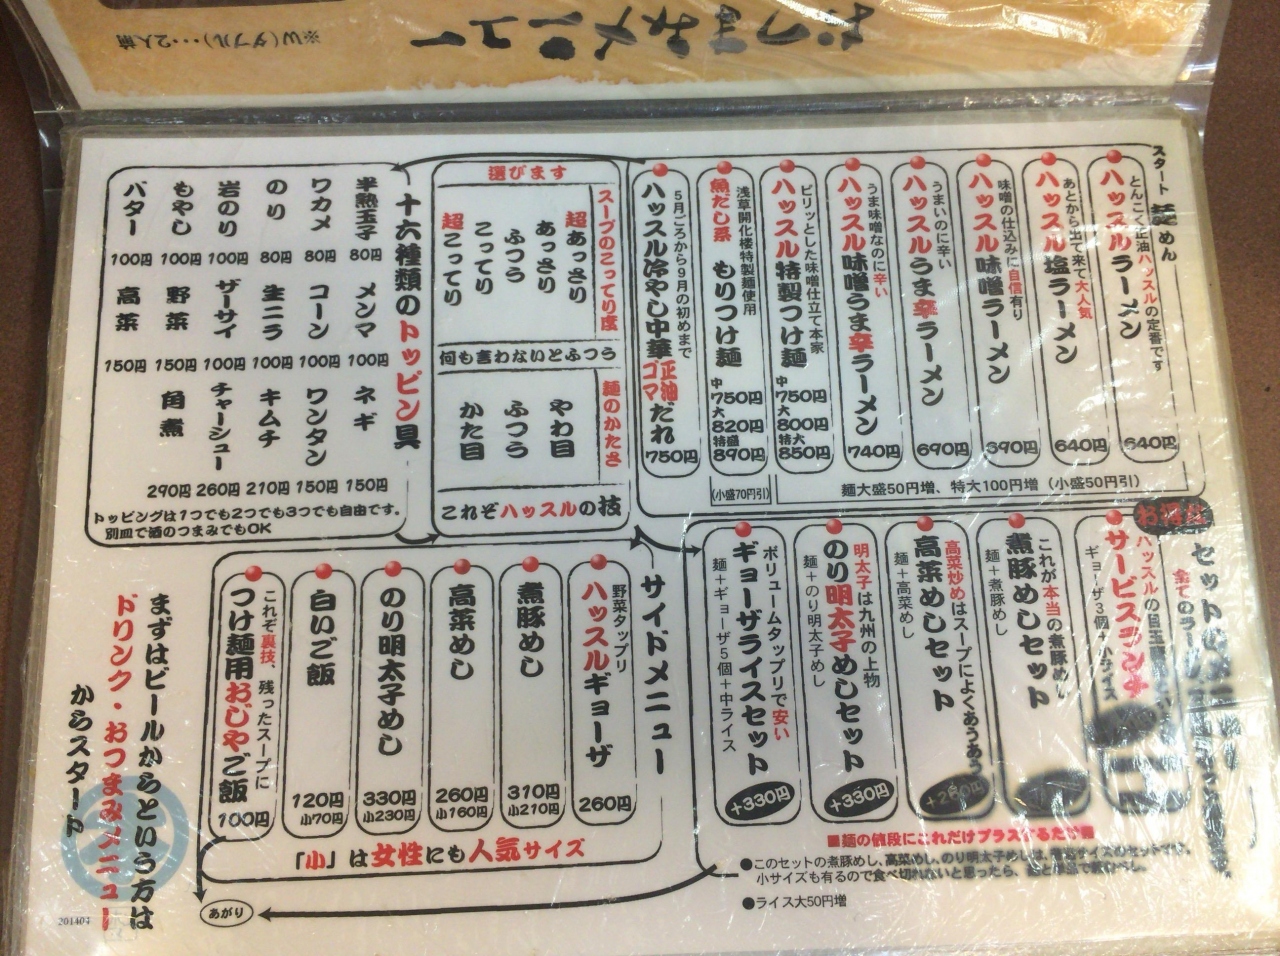 おつまみメニュー
※W(ダブル)・・・2人前
スタート
麺めん
とんこく正油ハッスルの定番です
ハッスルラーメン
640円
あとから出て来て大人気
ハッスル塩ラーメン
640円
味噌の仕込みに自信有り
ハッスル味噌ラーメン
690円
うまいのに辛い
ハッスルうま辛ラーメン
690円
うま味噌なのに辛い
ハッスル味噌うま辛ラーメン
740円
ピリッとした味噌仕立て本家
ハッスル特製つけ麺
中
750円
大
800円
特大
850円
浅草開化楼特製麺使用
魚だし系 もりつけ麺
中
750円
大
820円
特盛
890円
5月ごろから9月の初めまで
ハッスル冷やし中華 正油 ゴマ だれ
750円
麺大盛50円増、特大100円増(小盛50円引)
(小盛70円引)
選びます
スープのこってり度
超あっさり
あっさり
ふつう
こってり
超こってり
何も言わないとふつう
麺のかたさ
やわ目
ふつう
かた目
これぞハッスルの技
十六種類のトッピン具
半熟玉子 80円
メンマ 100円
ネギ 150円
ワカメ 80円
コーン 100円
ワンタン 150円
のり 80円
生ニラ 100円
キムチ 210円
岩のり 100円
ザーサイ 100円
チャーシュー 260円
もやし 100円
野菜 150円
角煮 290円
バター 100円
高菜 150円
トッピングは1つでも2つでも3つでも自由です。
別皿で酒のつまみでもOK
お得だ
セット
全てのラー
ハッスルの目玉
サービスランチ
ギョーザ3個+小ライス
これが本当の煮豚めし
煮豚めしセット
麺+煮豚めし
高菜炒めはスープによくあうあう
高菜めしセット
麺+高菜めし
明太子は九州の上物
のり明太子めしセット
麺+のり明太子めし
+330円
ボリュームタップリで安い
ギョーザライスセット
麺+ギョーザ5個+中ライス
+330円
■麺の値段にこれだけプラスするだけ
●このセットの煮豚めし、高菜めし、のり明太子めしは、
小サイズも有るので食べ切れないと思ったら、
●ライス大50円増
サイドメニュー
野菜タップリ
ハッスルギョーザ
260円
煮豚めし
310円
小210円
高菜めし
260円
小160円
のり明太子めし
330円
小230円
白いご飯
120円
小70円
これぞ裏技、残ったスープに
つけ麺用おじやご飯
100円
「小」は女性にも人気サイズ
あがり
まずはビールからという方は
ドリンク・おつまみメニュー
からスタート
201404